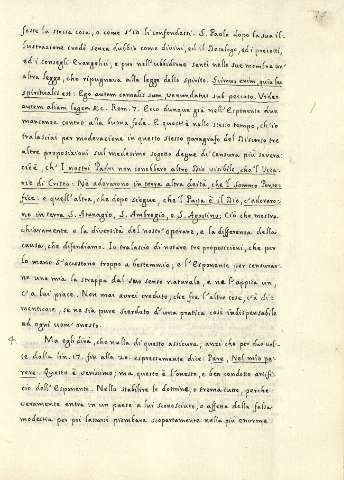 fosse la stessa cosa, o come s'io li confondessi. S. Paolo dopo la sua il-
lustrazione credè senza dubbio come divini, ed il Decalogo, ed i precetti,
ed i consegli Evangelici, e pur nell'ubbidirne sentì nelle sue membra un'
altra legge, che ripugnava alla legge dello spirito. Scimus enim, quia lex
spiritualis est: Ego autem carnalis sum venundatus sub peccato. Video
autem aliam legem &c. Rom. 7. Ecco dunque già nell'Esponente due
mancanze contro alla buona fede. E quest'è nello stesso tempo, ch'io
tralasciai per moderazione in questo stesso paragrafo del Discorso tre
altre proposizioni sul medesimo sogetto degne di censura più severa:
cioè ch' I nostri Padri non conobbero altro Dio visibile, che'l Vica-
rio di Cristo: Nè adorarono in terra altra deità, che'l sommo Ponte-
fice: e quell'altra, che dopo sciegue, che'l Papa è il Dio, c'adoraro-
no in terra S. Atanagio, S. Ambrogio, e S. Agostino; Ciò che mostra
chiaramente e la diversità del nostr'operare, e la differenza della
causa, che difendiamo. Io tralascio di notare tre proposizioni, che per
lo meno s'accostano troppo a bestemmie; e l'Esponente per censurar-
ne una mia la strappa dal suo senso naturale, e ne l'appicca un,
c'a lui piace. Non mai avrei creduto, che fra l'altre cose, c'à di-
menticate, se ne sia pure scordato d'una pratica così indispensabile
ad ogni uom'onesto.
Ma egli dirà, che nulla di questo assicura, anzi che per due vol-
te dalla lin. 17. fin alla 20. espressamente dice: Pare, Nel mio pa-
rere. Questo è verissimo; ma questo è l'onesto, e ben condotto artifi-
cio dell'Esponente. Nello stabilire le dottrine, o trema tutto, perchè
veramente entra in un paese a lui sconosciuto, o affetta della falsa
modestia per poi lasciarsi piombare scopertamente nella più enorme